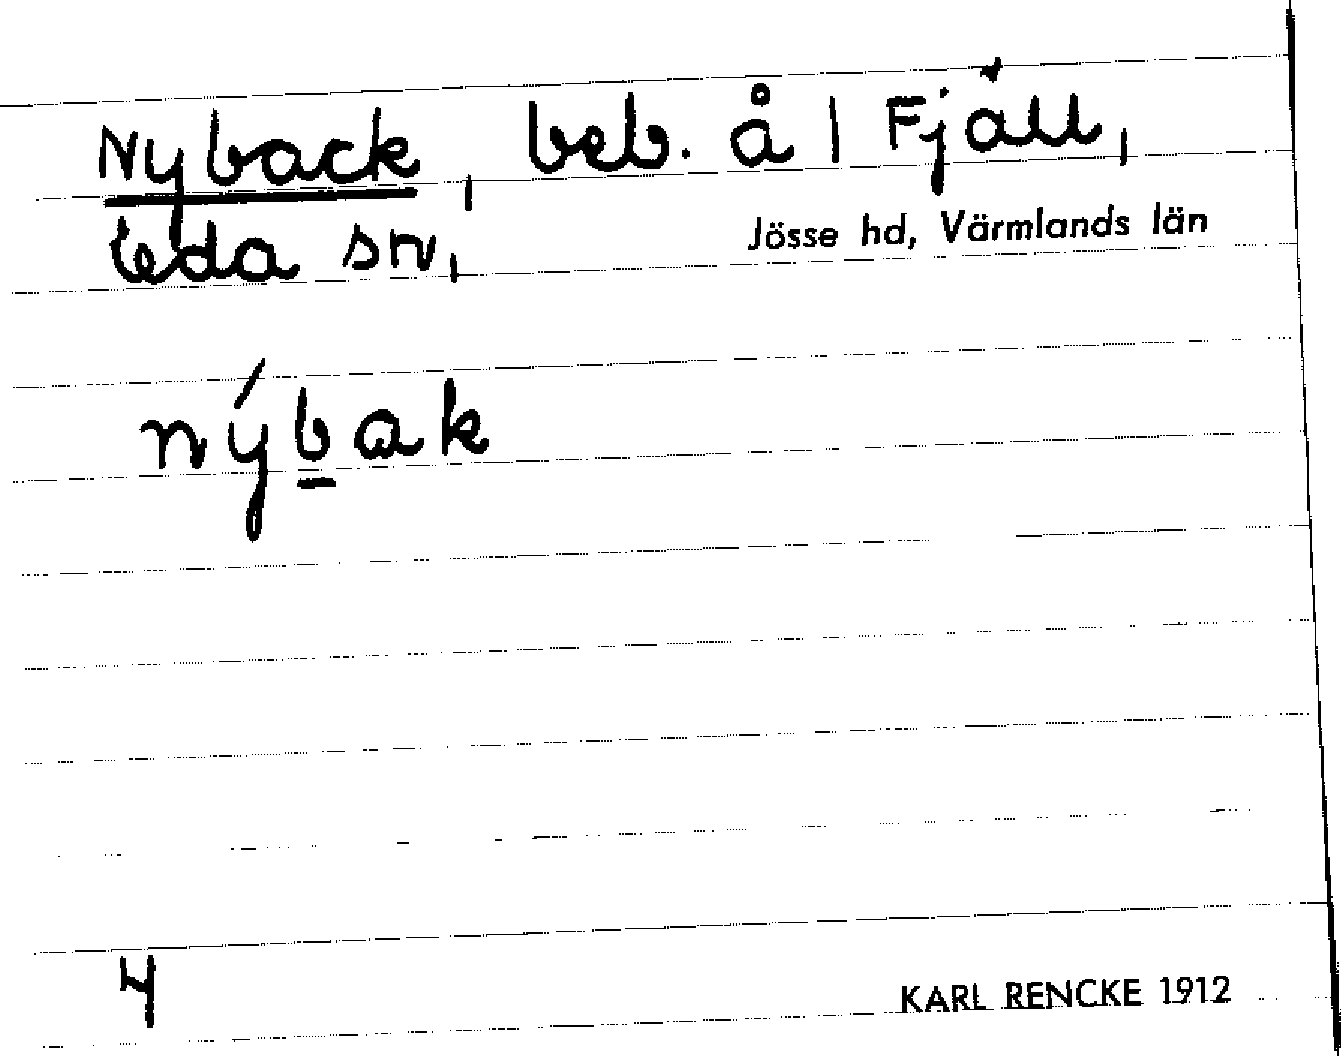 Nyback, beb. å 1 Fjäll,
Eda sn, Jösse hd, Värmlands län
nýbak
4
KARL RENCKE 1912